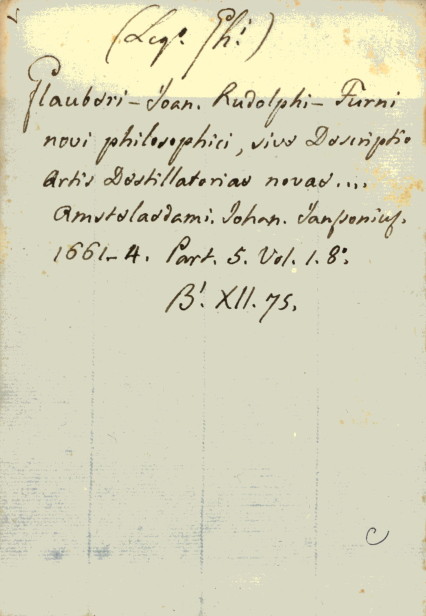 (Leg: Ph:)
Glauberi - Joan. Rudolphi - Furni
novi philosophici, sive Descriptio
Artis Destillatoriae novae....
Amstelaedami. Johan. Janssonius.
1661-4. Part. 5. Vol. 1. 8°.
B! XII. 75.
C